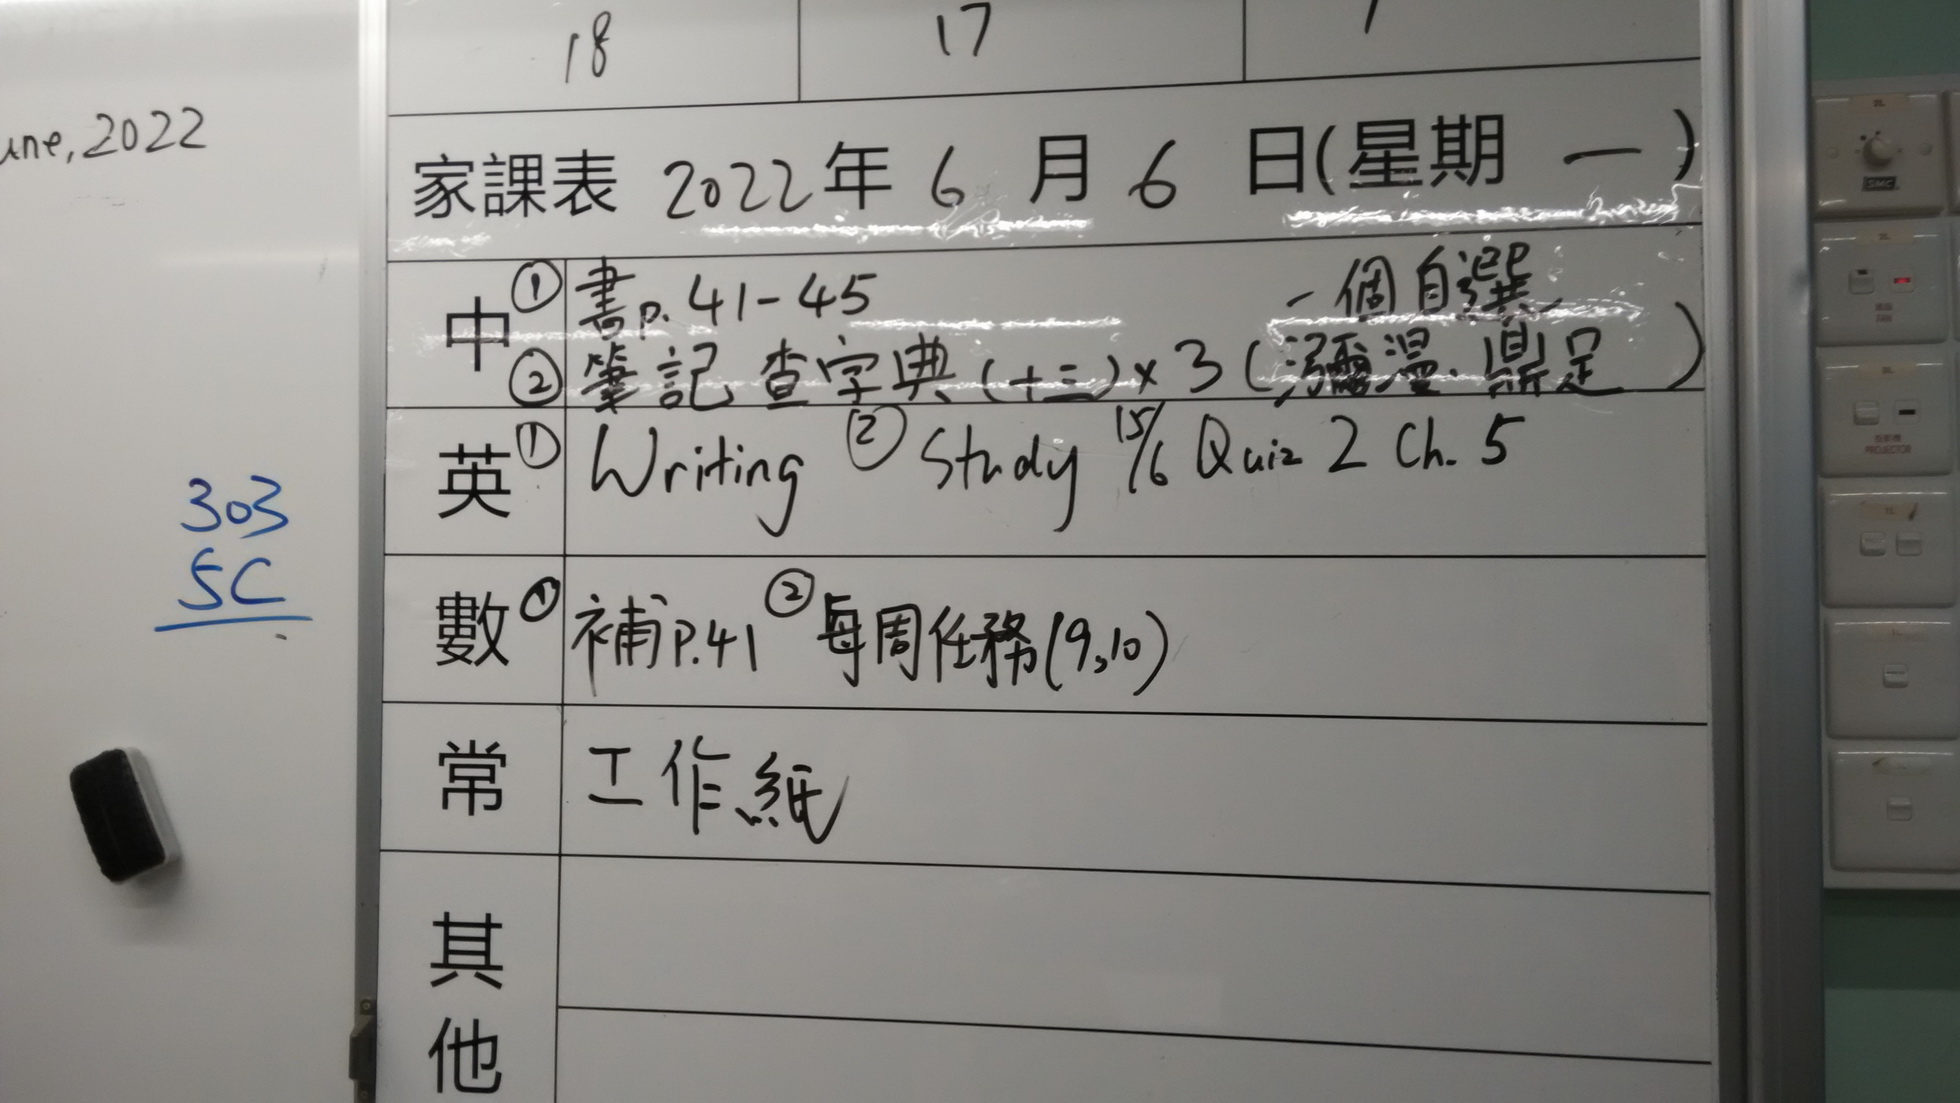 18 17
une, 2022
家課表 2022年 6 月 6 日(星期 一)
中 ① 書p. 41-45
一個自選
② 筆記 查字典 (十三) x 3 (瀰漫. 鼎足 )
英 ① Writing ② Study 15/6 Quiz 2 Ch. 5
303
5C
數 ① 補P.41 ② 每周任務(9,10)
常 工作紙
其
他
SMC
FAN
PROJECTOR